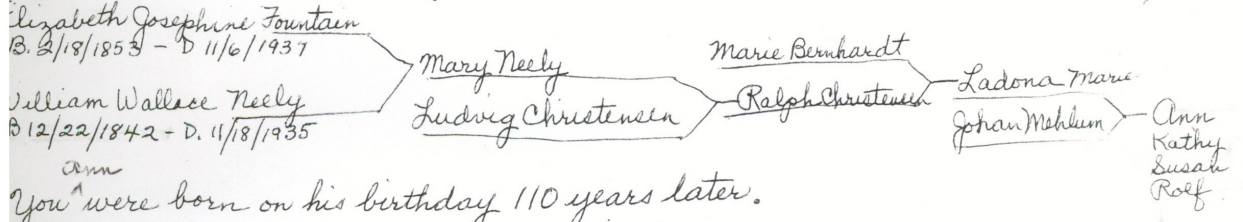 Elizabeth Josephine Fountain
B. 2/18/1853 - D 11/6/1937
William Wallace Neely
B 12/22/1842 - D. 11/18/1935
Mary Neely
Ludvig Christensen
Marie Bernhardt
Ralph Christensen
Ladona Marie
Johan Mehlum
Ann
Kathy
Susan
Rolf
Ann
You ^ were born on his birthday 110 years later.